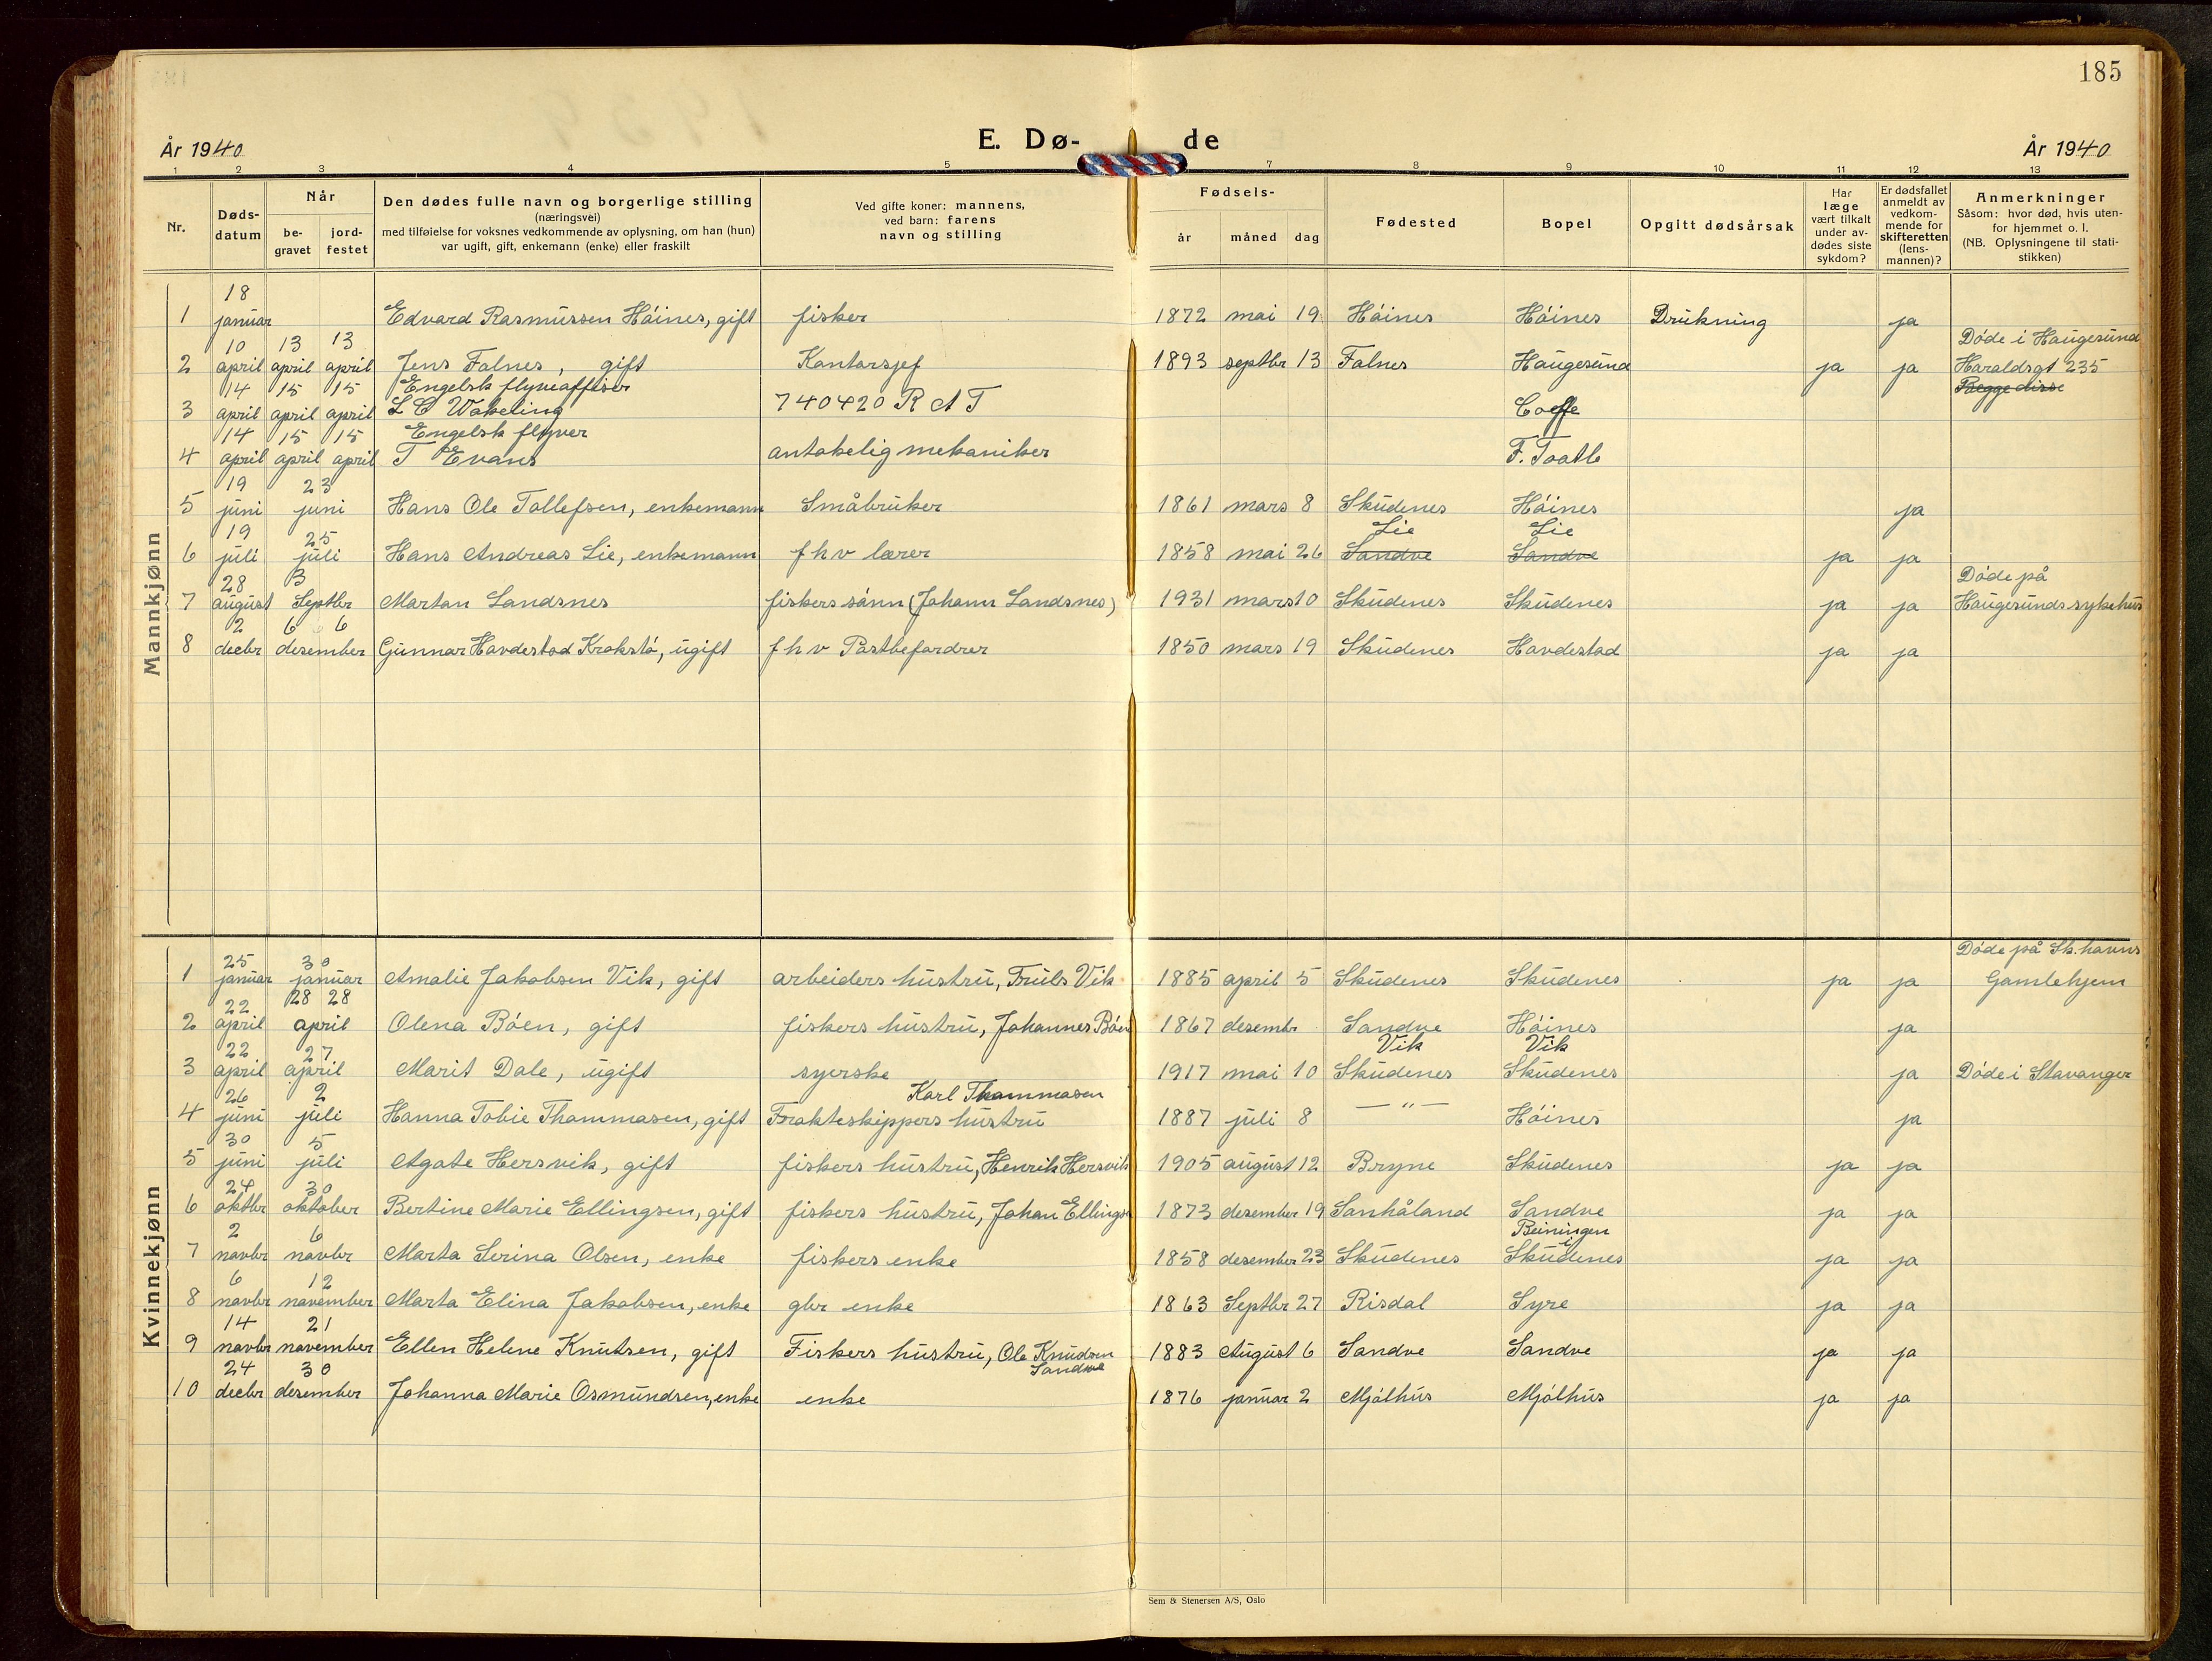 185
År 1940
E. Dø-
de
År 1940
1 2 3 4 5 7 8 9 10 11 12 13
Nr.
Døds-
datum
Når
be-
gravet
jord-
festet
Den dødes fulle navn og borgerlige stilling
(næringsvei)
med tilføielse for voksnes vedkommende av oplysning, om han (hun)
var ugift, gift, enkemann (enke) eller fraskilt
Ved gifte koner: mannens,
ved barn: farens
navn og stilling
Fødsels-
år måned dag
Fødested
Bopel
Opgitt dødsårsak
Har
læge
vært tilkalt
under av-
dødes siste
sykdom?
Er dødsfallet
anmeldt av
vedkom-
mende for
skifteretten
(lens-
mannen)?
Anmerkninger
Såsom: hvor død, hvis uten-
for hjemmet o. l.
(NB. Oplysningene til stati-
stikken)
Mannkjønn
18
1 januar Edvard Rasmussen Høines, gift fisker 1872 mai 19 Høines Høines Drukning ja
10 13 13 Døde i Haugesund
2 april april april Jens Falnes, gift Kontorsjef 1893 septbr 13 Falnes Haugesund ja ja Haraldsgt 235
14 15 15 Engelsk flyveoffiser Begge disse
3 april april april L C Wakeling 740420 R A F
14 15 15 Engelsk flyver
4 april april april T Evans antakelig mekaniker
19 23
5 juni juni Hans Ole Tollefsen, enkemann Småbruker 1861 mars 8 Skudenes Høines ja
19 25 Lie Lie
6 juli juli Hans Andreas Lie, enkemann f h v lærer 1858 mai 26 Sandve Sandve ja ja
28 3 Døde på
7 august Septbr Marton Landsnes fiskers sønn (Johann Landsnes) 1931 mars 10 Skudenes Skudenes ja ja Haugesunds sykehus
2 6 6
8 decbr desember Gunnar Hovdestad Krokstø, ugift f h v Postbefordrer 1850 mars 19 Skudenes Hovdestad ja ja
Kvinnekjønn
25 30 Døde på Sk.havns
1 januar januar Amalie Jakobsen Vik, gift arbeiders hustru, Truls Vik 1885 april 5 Skudenes Skudenes ja ja Gamlehjem
22 28 28
2 april april Olena Bøen, gift fiskers hustru, Johannes Bøen 1867 desembr Sandve Høines ja
22 27 Vik Vik
3 april april Marit Dale, ugift syerske 1917 mai 10 Skudenes Skudenes ja Døde i Stavanger
26 2 Karl Thommasen
4 juni juli Hanna Tobie Thommasen, gift Frakteskippers hustru 1887 juli 8 — " — Høines ja
30 5
5 juni juli Agate Hersvik, gift fiskers hustru, Henrik Hersvik 1905 august 12 Bryne Skudenes ja ja
24 30
6 oktbr oktober Bertine Marie Ellingsen, gift fiskers hustru, Johan Ellings 1873 desember 19 Sanhåland Sandve ja ja
2 6 Beiningen
i
7 novbr novbr Marta Serina Olsen, enke fiskers enke 1858 desember 23 Skudenes Skudenes ja ja
6 12
8 novbr november Marta Elina Jakobsen, enke gbr enke 1863 Septbr 27 Risdal Syre ja ja
14 21
9 novbr november Ellen Helene Knutsen, gift Fiskers hustru, Ole Knudsen 1883 August 6 Sandve Sandve ja ja
24 30 Sandve
10 decbr desember Johanna Marie Osmundsen, enke enke 1876 januar 2 Mjølhus Mjølhus ja ja
Sem & Stenersen A/S, Oslo